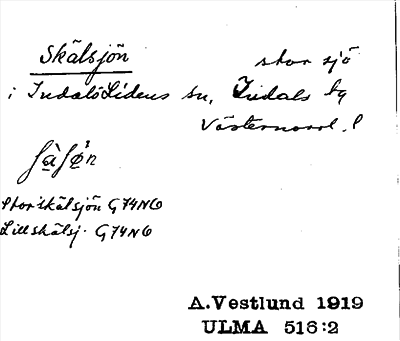 Skälsjön stor sjö
i Indals Lidens sn, Indals by
Västernorrl. l
Storskälsjön G74NO
Lillskälsj. G74NO
A.Vestlund 1919
ULMA 516:2